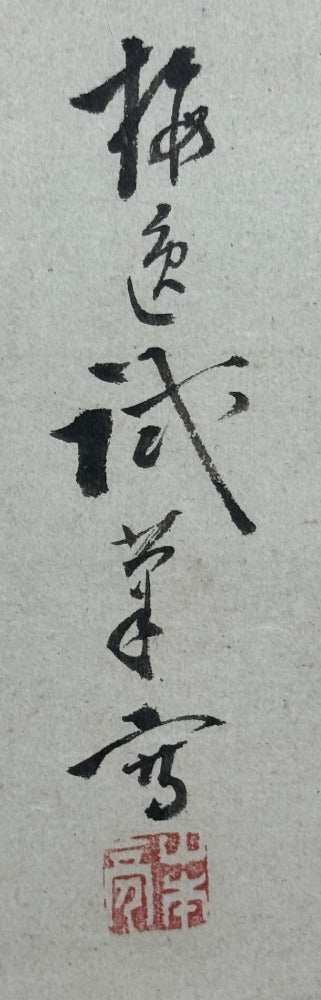 梅逸試筆寫